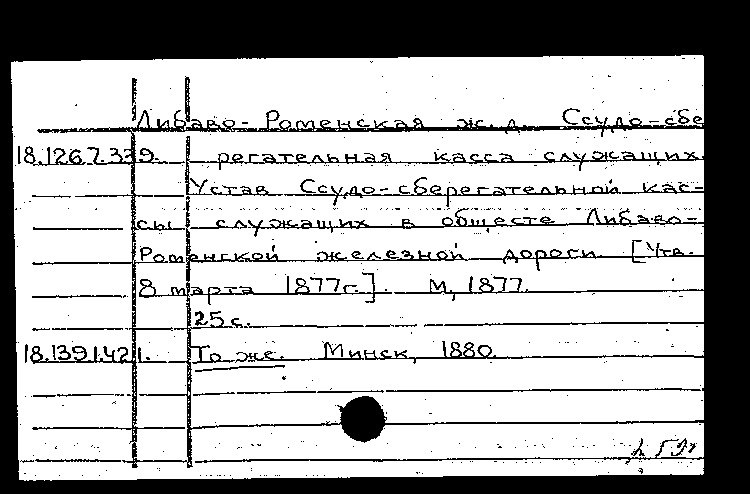 Либаво-Роменская ж.д. Ссудо-сбе
18.126.7.339. регательная касса служащих.
Устав Ссудо-сберегательной кас-
сы служащих в общесте Либаво-
Роменской железной дороги. [Утв.
8 марта 1877г.]. М, 1877.
25 с.
18.139.1.421. То же. Минск, 1880.